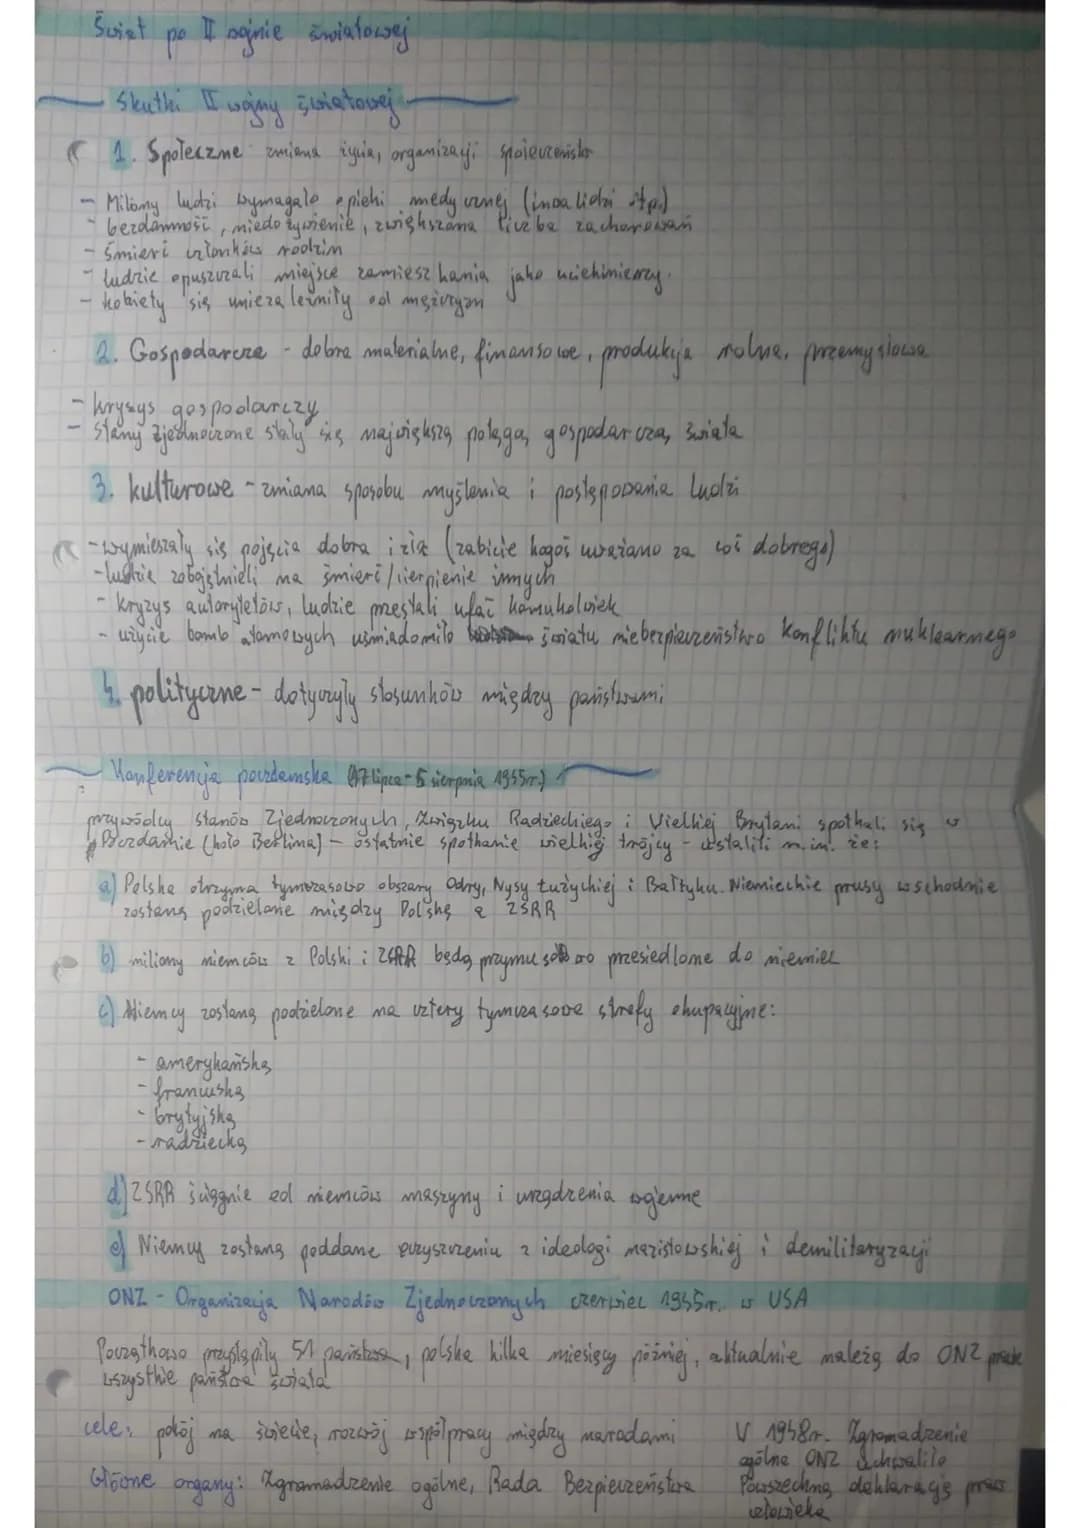 Świat po II wojnie światowej
Skutki II wojny światowej
1. Społeczne zmiana życia, organizacji społeczeństw
- Miliony ludzi wymagało opieki medycznej (inwalidzi itp.)
- bezdomność, niedożywienie, zwiększona liczba zachorowań
- śmierć członków rodzin
- ludzie opuszczali miejsce zamieszkania jako uciekinierzy.
- kobiety się uniezależniły od mężczyzn
2. Gospodarcze - dobra materialne, finansowe, produkcja rolna, przemysłowa
- kryzys gospodarczy
- Stany Zjednoczone stały się największą potęgą gospodarczą świata
3. kulturowe - zmiana sposobu myślenia i postępowania ludzi
- wymieszały się pojęcia dobra i zła (zabicie kogoś uważano za coś dobrego)
- ludzie zobojętnieli na śmierć/cierpienie innych
- kryzys autorytetów, ludzie przestali ufać komukolwiek
- użycie bomb atomowych uświadomiło światu niebezpieczeństwo konfliktu nuklearnego
4. polityczne - dotyczyły stosunków między państwami
Konferencja poczdamska (17 lipca - 5 sierpnia 1945r.)
przywódcy stanów Zjednoczonych, Związku Radzieckiego i Wielkiej Brytani spotkali się w
Poczdamie (koło Berlina) - ostatnie spotkanie wielkiej trójcy - ustalili m.in. że:
a) Polska otrzyma tymczasowo obszary Odry, Nysy Łużyckiej i Bałtyku. Niemieckie prusy wschodnie
zostaną podzielone między Polskę a ZSRR
b) miliony niemców z Polski i ZSRR będą przymusowo przesiedlone do niemiec
c) Niemcy zostaną podzielone na cztery tymczasowe strefy okupacyjne:
- amerykańską
- francuską
- brytyjską
- radziecką
d) ZSRR ściągnie od niemców maszyny i urządzenia wojenne
e) Niemcy zostaną poddane oczyszczeniu z ideologi nazistowskiej i demilitaryzacji
ONZ - Organizacja Narodów Zjednoczonych czerwiec 1945r. w USA
Początkowo przystąpiły 51 państwa, polska kilka miesięcy później, aktualnie należą do ONZ prawie
wszystkie państwa świata
cele: pokój na świecie, rozwój współpracy między narodami
Główne organy: Zgromadzenie ogólne, Rada Bezpieczeństwa
V 1948r. Zgromadzenie
ogólne ONZ uchwaliło
Powszechną deklarację praw
człowieka